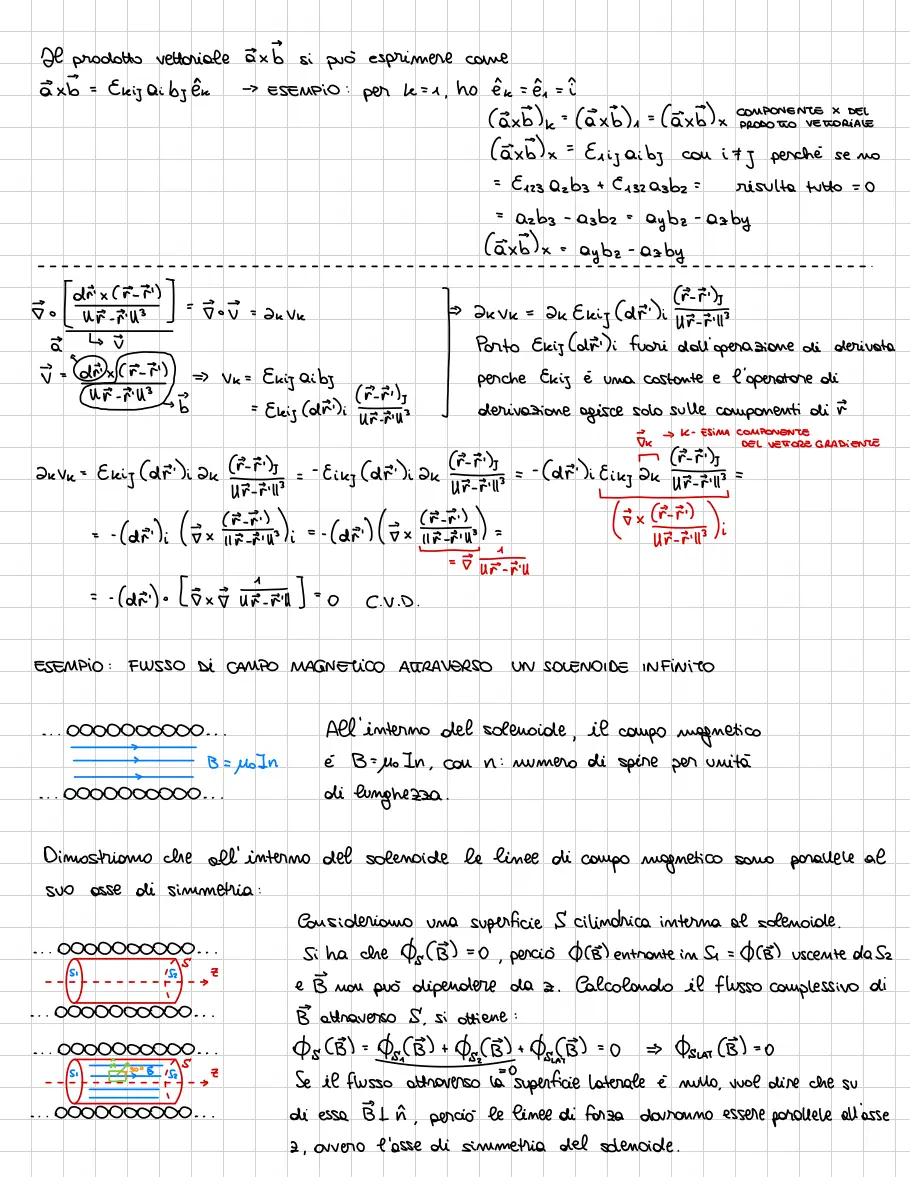 Il prodotto vettoriale a⃗×b⃗ si può esprimere come
a⃗×b⃗ = Ɛkij ai bj êk → ESEMPIO: per k=1, ho êk = ê1 = î
(a⃗×b⃗)k = (a⃗×b⃗)1 = (a⃗×b⃗)x COMPONENTE X DEL PRODOTTO VETTORIALE
(a⃗×b⃗)x = Ɛ1ij ai bj con i≠j perché se no
= Ɛ123 a2b3 + Ɛ132 a3b2 = risulta tutto = 0
= a2b3 - a3b2 = aybz - azby
(a⃗×b⃗)x = aybz - azby
∇⃗ ∘ [dr⃗'×(r⃗-r⃗') / ‖r⃗-r⃗'‖³] = ∇⃗∘v⃗ = ∂k vk
↳ v⃗
a⃗
v⃗ = dr⃗'×(r⃗-r⃗') / ‖r⃗-r⃗'‖³ ⇒ vk = Ɛkij ai bj
→ b⃗
= Ɛkij (dr⃗')i (r⃗-r⃗')j / ‖r⃗-r⃗'‖³
⇒ ∂k vk = ∂k Ɛkij (dr⃗')i (r⃗-r⃗')j / ‖r⃗-r⃗'‖³
Porto Ɛkij (dr⃗')i fuori dall'operazione di derivata
perche Ɛkij è una costante e l'operatore di
derivazione agisce solo sulle componenti di r⃗
∇⃗k → K-ESIMA COMPONENTE
DEL VETTORE GRADIENTE
∂k vk = Ɛkij (dr⃗')i ∂k (r⃗-r⃗')j / ‖r⃗-r⃗'‖³ = -Ɛikj (dr⃗')i ∂k (r⃗-r⃗')j / ‖r⃗-r⃗'‖³ = -(dr⃗')i Ɛikj ∂k (r⃗-r⃗')j / ‖r⃗-r⃗'‖³ =
(∇⃗ × (r⃗-r⃗') / ‖r⃗-r⃗'‖³)i
= -(dr⃗')i (∇⃗ × (r⃗-r⃗') / ‖r⃗-r⃗'‖³)i = -(dr⃗') (∇⃗ × (r⃗-r⃗') / ‖r⃗-r⃗'‖³) =
= ∇⃗ 1 / ‖r⃗-r⃗'‖
= -(dr⃗')∘[∇⃗×∇⃗ 1 / ‖r⃗-r⃗'‖] = 0 C.V.D.
ESEMPIO: FLUSSO DI CAMPO MAGNETICO ATTRAVERSO UN SOLENOIDE INFINITO
B = μ0In
All'interno del solenoide, il campo magnetico
è B=μ0In, con n: numero di spire per unità
di lunghezza.
Dimostriamo che all'interno del solenoide le linee di campo magnetico sono parallele al
suo asse di simmetria:
S1 S2 S z
S1 B⃗ S2 S z
Consideriamo una superficie S cilindrica interna al solenoide.
Si ha che ϕS(B⃗) = 0, perciò ϕ(B⃗) entrante in S1 = ϕ(B⃗) uscente da S2
e B⃗ non può dipendere da z. Calcolando il flusso complessivo di
B⃗ attraverso S, si ottiene:
ϕS(B⃗) = ϕS1(B⃗) + ϕS2(B⃗) + ϕSLAT(B⃗) = 0 ⇒ ϕSLAT(B⃗) = 0
=0
Se il flusso attraverso la superficie laterale è nullo, vuol dire che su
di essa B⃗⊥n̂, perciò le linee di forza dovranno essere parallele all'asse
z, ovvero l'asse di simmetria del solenoide.